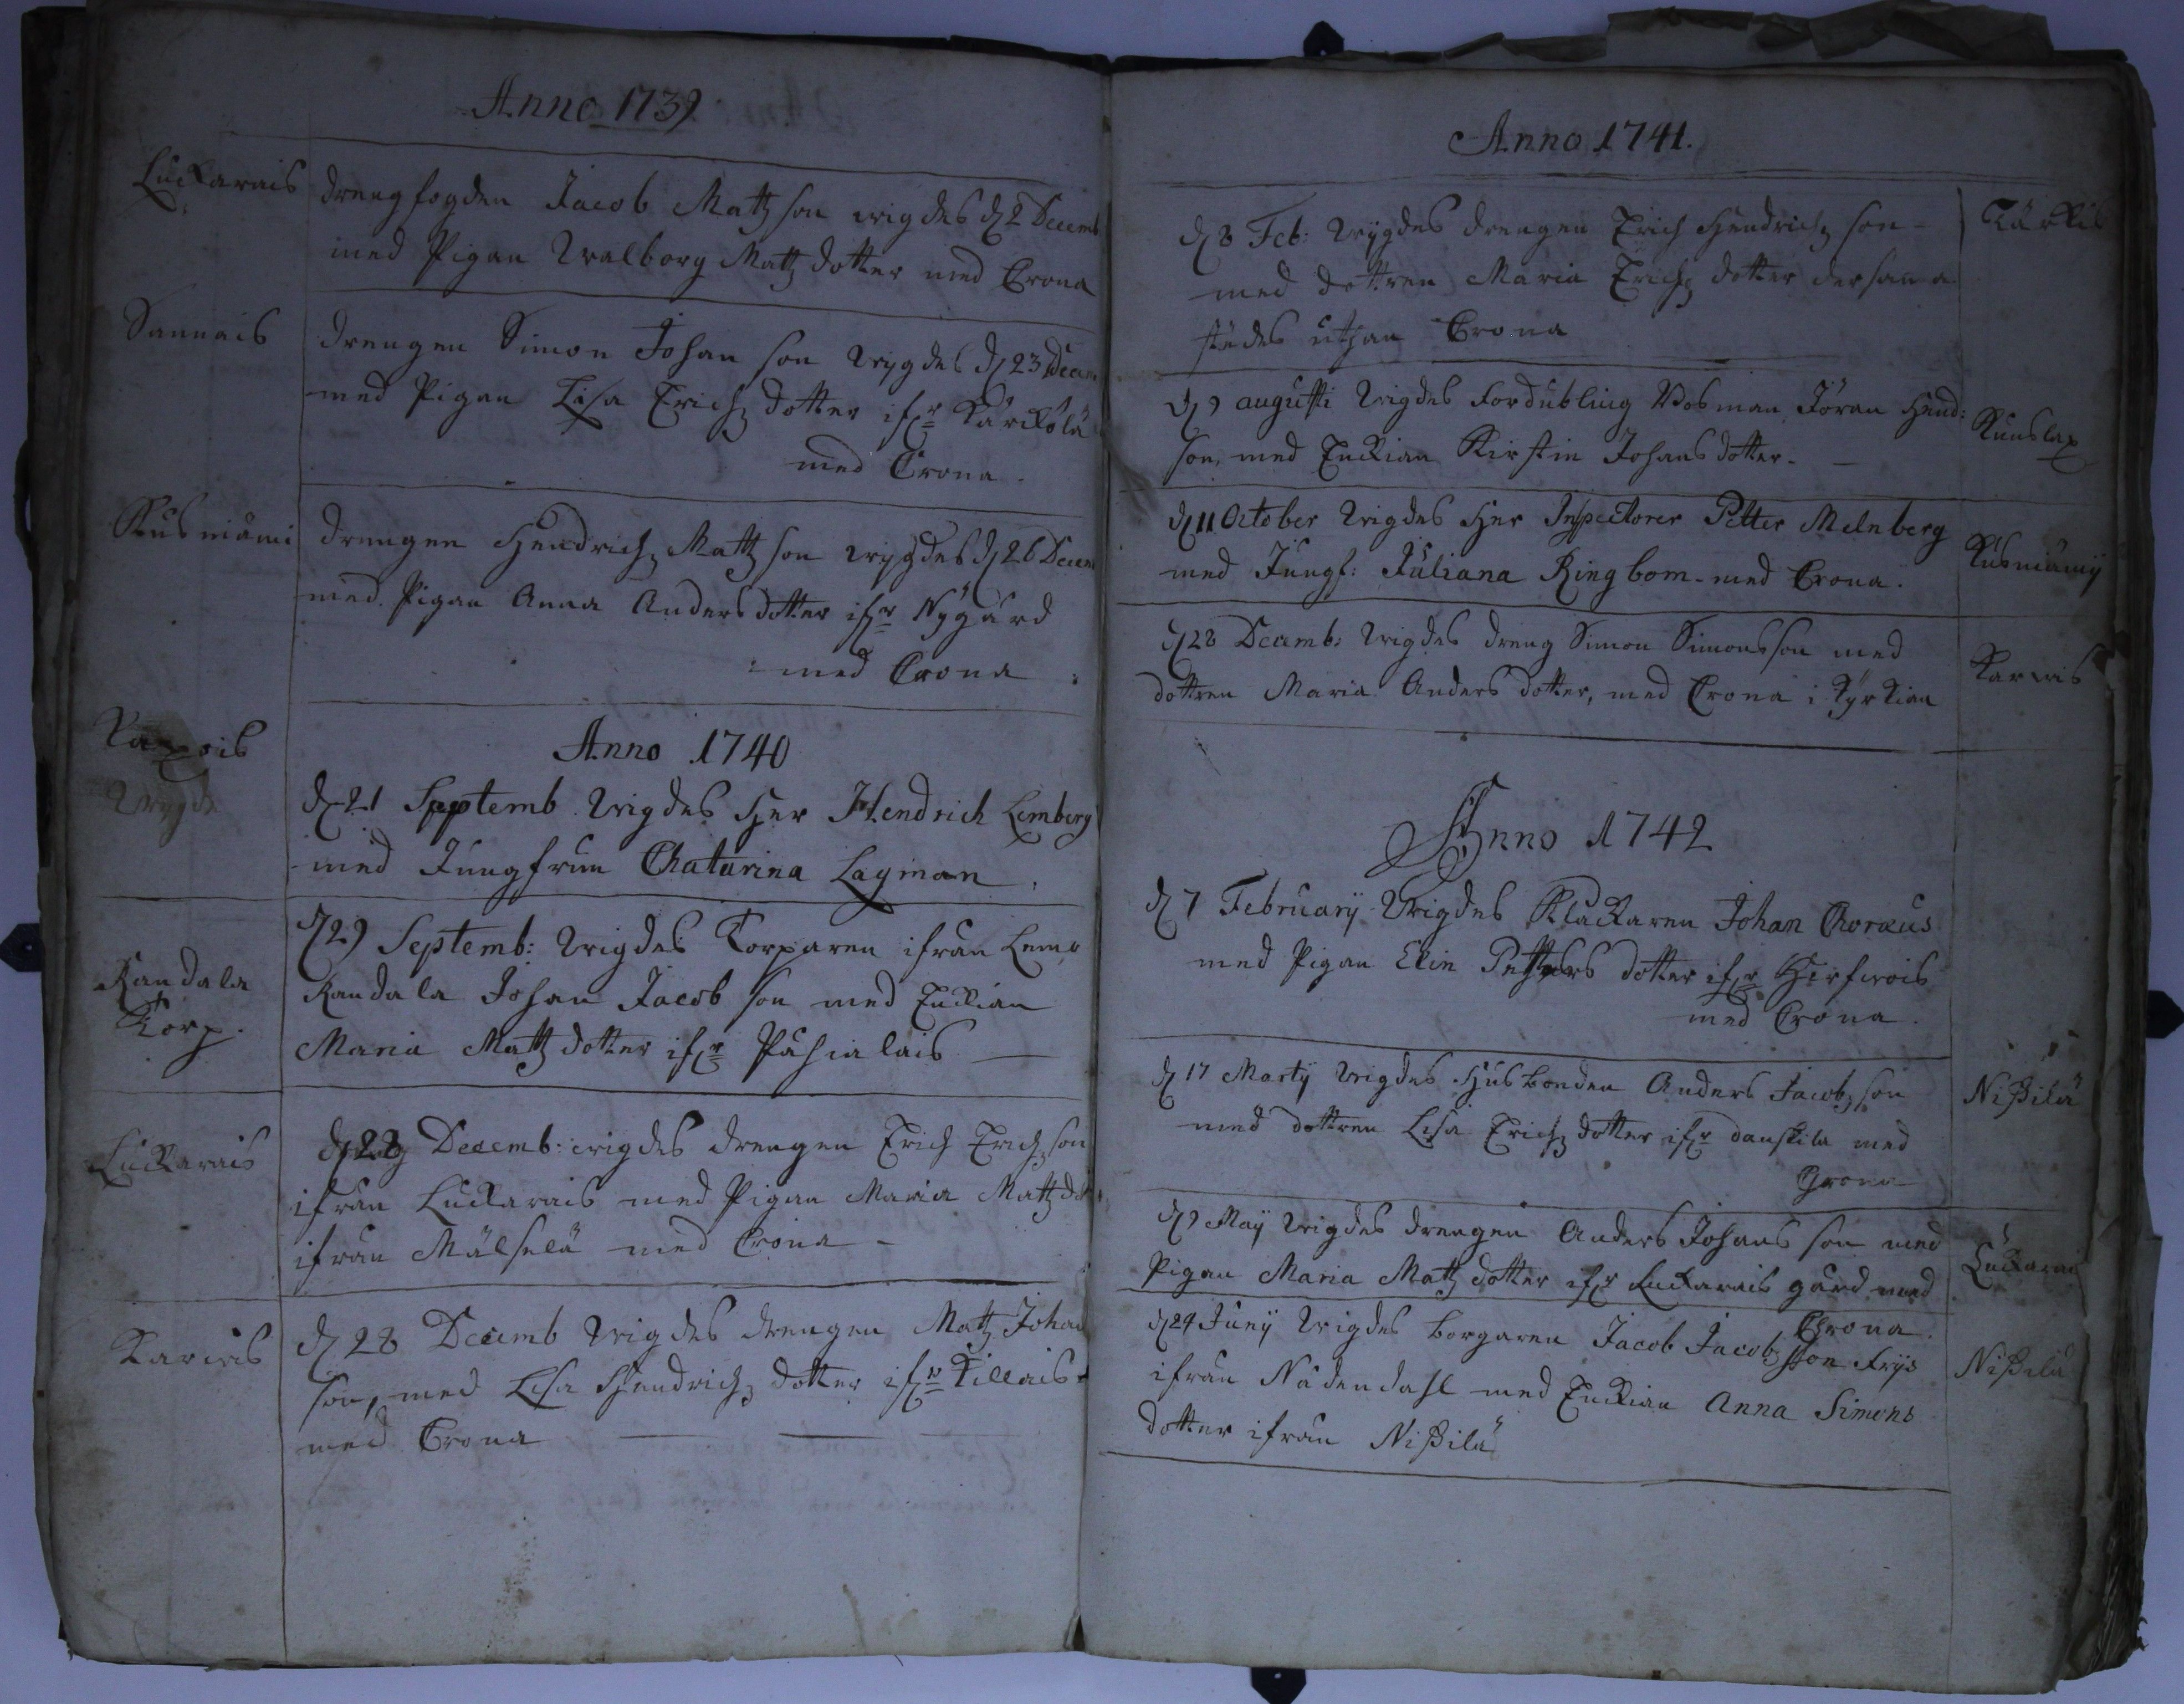 Anno 1739
Luckarais
drengfogden Jacob Mattzson wigdes d. 2 Decemb
med Pigan Walborg Mattz dotter med Crona
Sannais
drengen Simon Johan son wygdes d. 23 Decem
med Pigan Lisa Erichz dotter ifr Kärckölä
med Crona.
Kusniämi
drengen Hendrich Mattz son wygdes d. 26 Decem
med Pigan Anna Anders dotter ifr Nygård
med Crona
Anno 1740
d. 21 Septemb. wigdes Her Hendrich Lemberg
med Jungfrun Chatarina Lagman.
Kandala
Torp.
d. 29 Septemb: wigdes Torparen ifrån Lemo
Kandala Johan Jacob son med Enckian
Maria Mattz dotter ifr Påhialais
Luckarais
d. 28 Decemb: wigdes drengen Erich Erichson
ifrån Luckarais med Pigan Maria Mattz dot
ifrån Mälselä med Crona
Karwis
d. 28 Decemb wigdes drengen Mattz Johan
son, med Lisa Hendrichz dotter ifr Killais
med Crona
Anno 1741.
d. 8 Feb: wygdes drengen Erich Hendrichz son
med dottren Maria Erichz dotter dersama
städes uthan Crona
d. 9 augusti wigdes Fordubling Bosman Jöran Hend:
son, med Enckian Kirstin Johans dotter.
Kunslax
d. 11 October wigdes Her Inspectorer Petter Melnberg
med Jungf: Juliana Ringbom. med Crona.
Kusniämij
d. 28 Decemb: wigdes dreng Simon Simonsson med
dottren Maria Anders dotter, med Crona i Kyrkian
Karwis
Anno 1742
d. 7 February wigdes Klåckaren Johan Choræus
med Pigan Elin Petters dotter ifr Hirfwois
med Crona.
d. 17 Marty wigdes Husbonden Anders Jacobz son
med dottren Lisa Erichz dotter ifr danskila med
Crona
Nißilä
d. 9 Maij wigdes drengen Anders Johans son med
Pigan Maria Mattz dotter ifr Luckarais gård med
Crona.
Luckarai
d. 24 Junij wigdes borgaren Jacob Jacobz son Frijs
ifrån Nådendahl med Enckian Anna Simons
dotter ifrån Nißilä
Nißilä